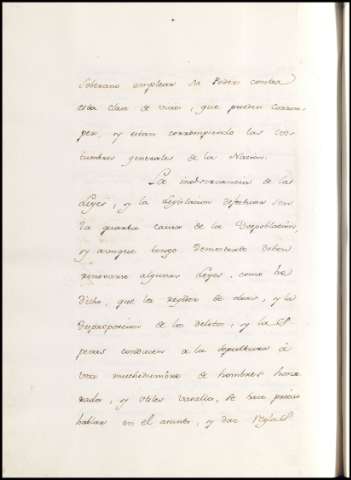 Soberano emplear su Poder contra
esta clase de vicios, que pueden corrom-
per, y estan corrompiendo las cos
tumbres generales de la Nacion.
La inobservancia de las
Leyes, y la Legislacion defectuosa son
la quarta causa de la Despoblacion,
y aunque tengo demostrado deben
renovarse algunas Leyes, como he
dicho, que los de y la
Desproporcion de los delitos, y las
penas conducen a la sepultura á
una muchedumbre de hombres honr
rados, y utiles vasallos, se hace preciso
hablar en el asunto, y dar